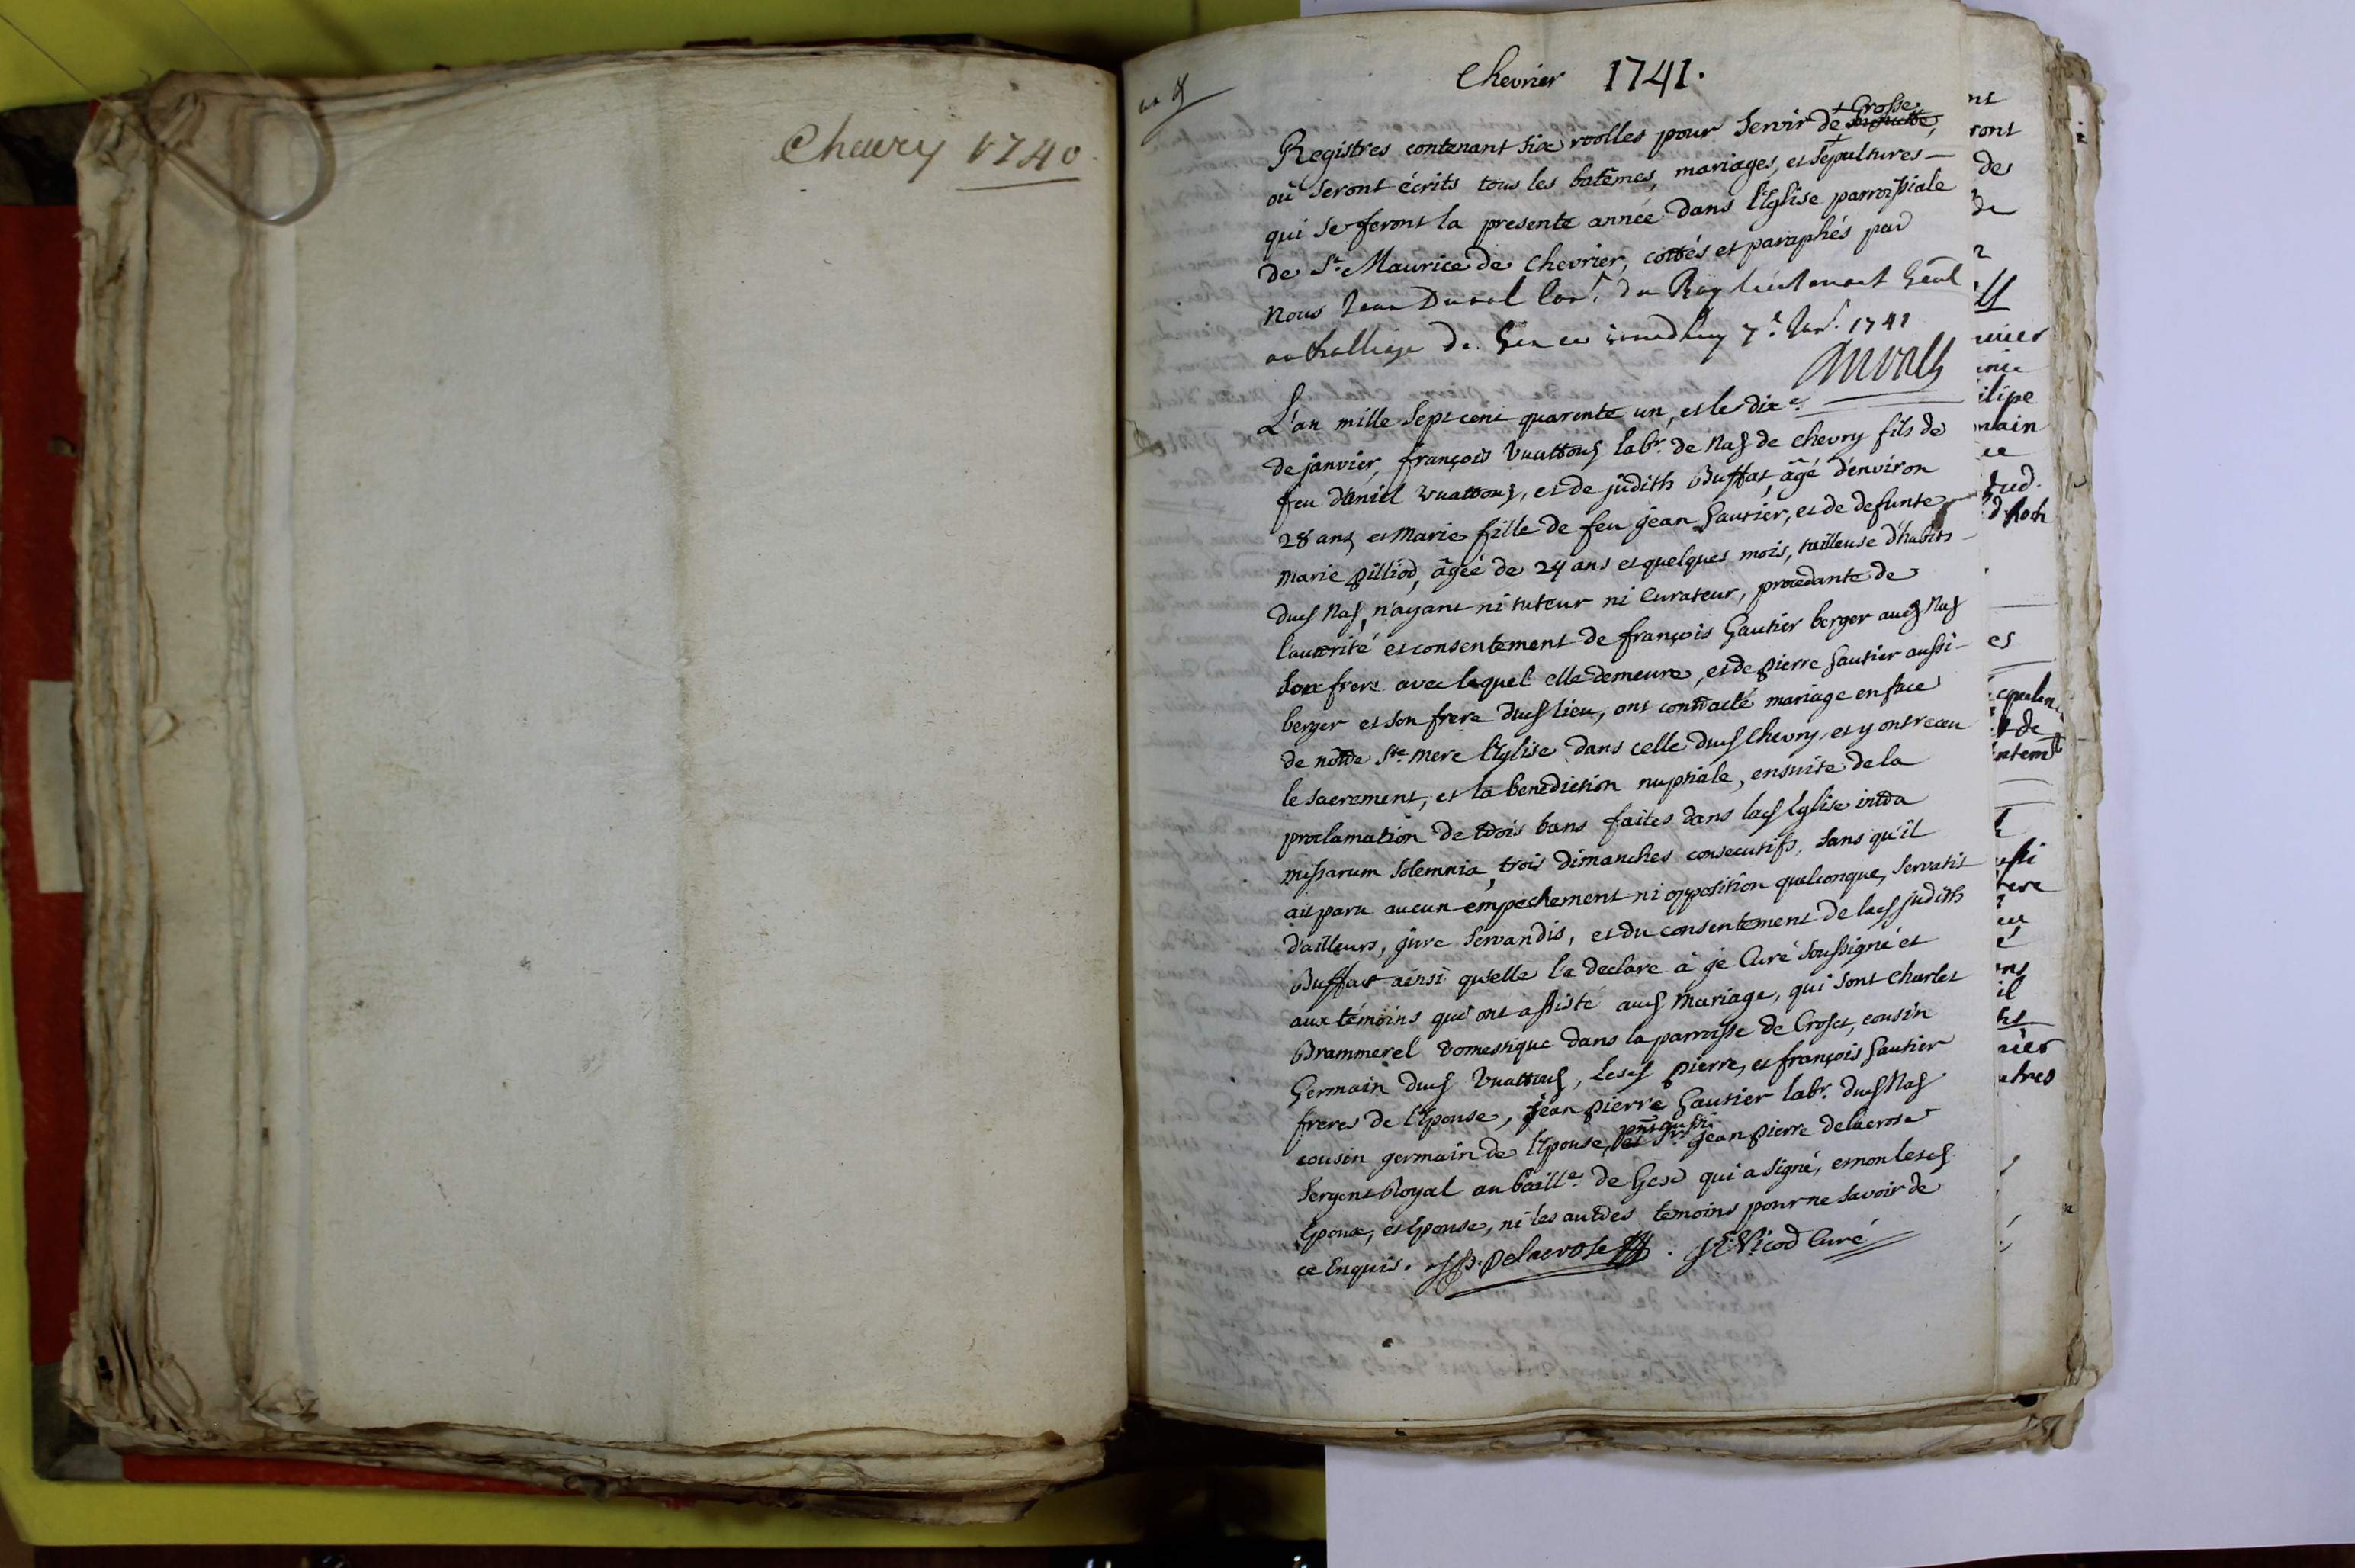 Chevry 1740.
Chevrier 1741.
Registres contenant six roolles pour servir de + Grosse, minutte,
où seront écrits tous les batêmes, mariages, et sepultures
qui se feront la presente année dans l'Eglise parroissiale
de St. Maurice de Chevrier, cottés et paraphés par
Nous Jean Duval Conr. du Roy Lieutenant Genal
au Balliage de Gex ce jourdhuy 7e Janr. 1741
Duval
L'an mille sept cent quarente un, et le dixe
de janvier, françois Vuattoux labr. de Naz de chevry fils de
feu daniel Vuattoux, et de judith Buffat, âgé d'environ
28 ans, et Marie fille de feu jean Gautier, et de defunte
marie pilliod, âgée de 24 ans et quelques mois, tailleuse d'habits
dud. Naz, n'ayant ni tuteur ni curateur, procedante de
l'autorité et consentement de françois Gautier berger aud. Naz
son frere avec lequel elle demeure, et de pierre Gautier aussi
berger et son frere dud. lieu, ont contracté mariage en face
de nôtre Ste. mere l'Eglise dans celle dud. Chevry, et y ont receu
le sacrement, et la benediction nuptiale, ensuite de la
proclamation de trois bans faites dans lad. Eglise intra
missarum solemnia, trois dimanches consecutifs, sans qu'il
ait paru aucun empechement ni opposition quelconque, servatis
d'ailleurs, jure servandis, et du consentement de lad. judith
Buffat ainsi qu'elle l'a declare à je Curé soussigné et
aux témoins qui ont assisté aud. Mariage, qui sont Charles
Brammerel domestique dans la parroisse de Croset, cousin
Germain dud. Vuattoux, lesd. pierre, et françois Gautier
freres de l'Epouse, jean pierre Gautier labr. dud. Naz
cousin germain de l'Epouse, et Sr. jean pierre delacrose
sergent Royal au baille. de Gex qui a signé, et non lesd.
Epoux, et Epouse, ni les autres temoins pour ne savoir de
ce Enquis. J P. Delacrose . Nicod Curé